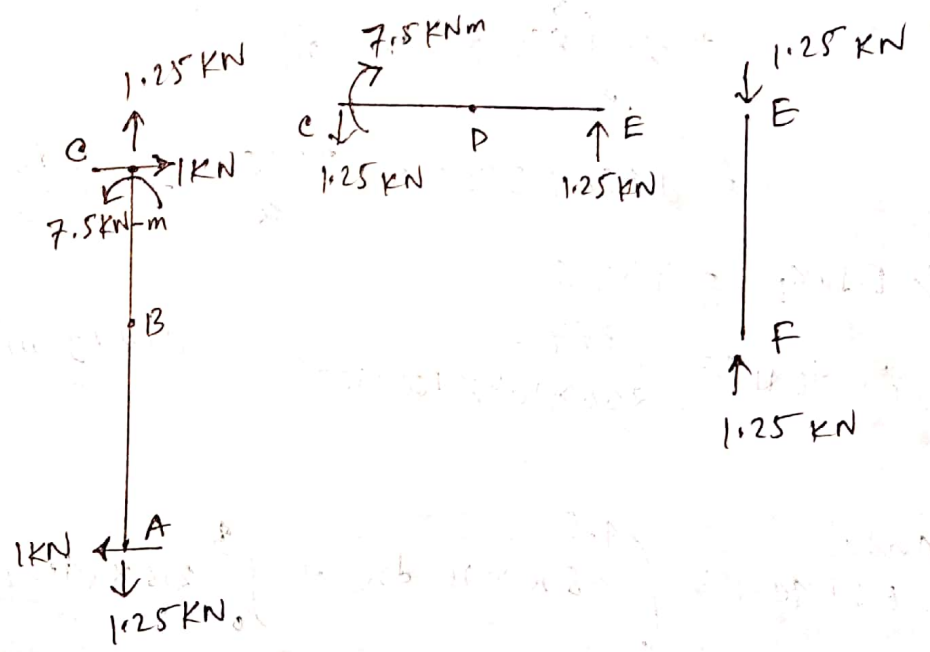 1.25 KN
C
1KN
7.5KN-m
B
1KN
A
1.25KN.
7.5 KNm
C
D
E
1.25 KN
1.25 KN
1.25 KN
E
F
1.25 KN